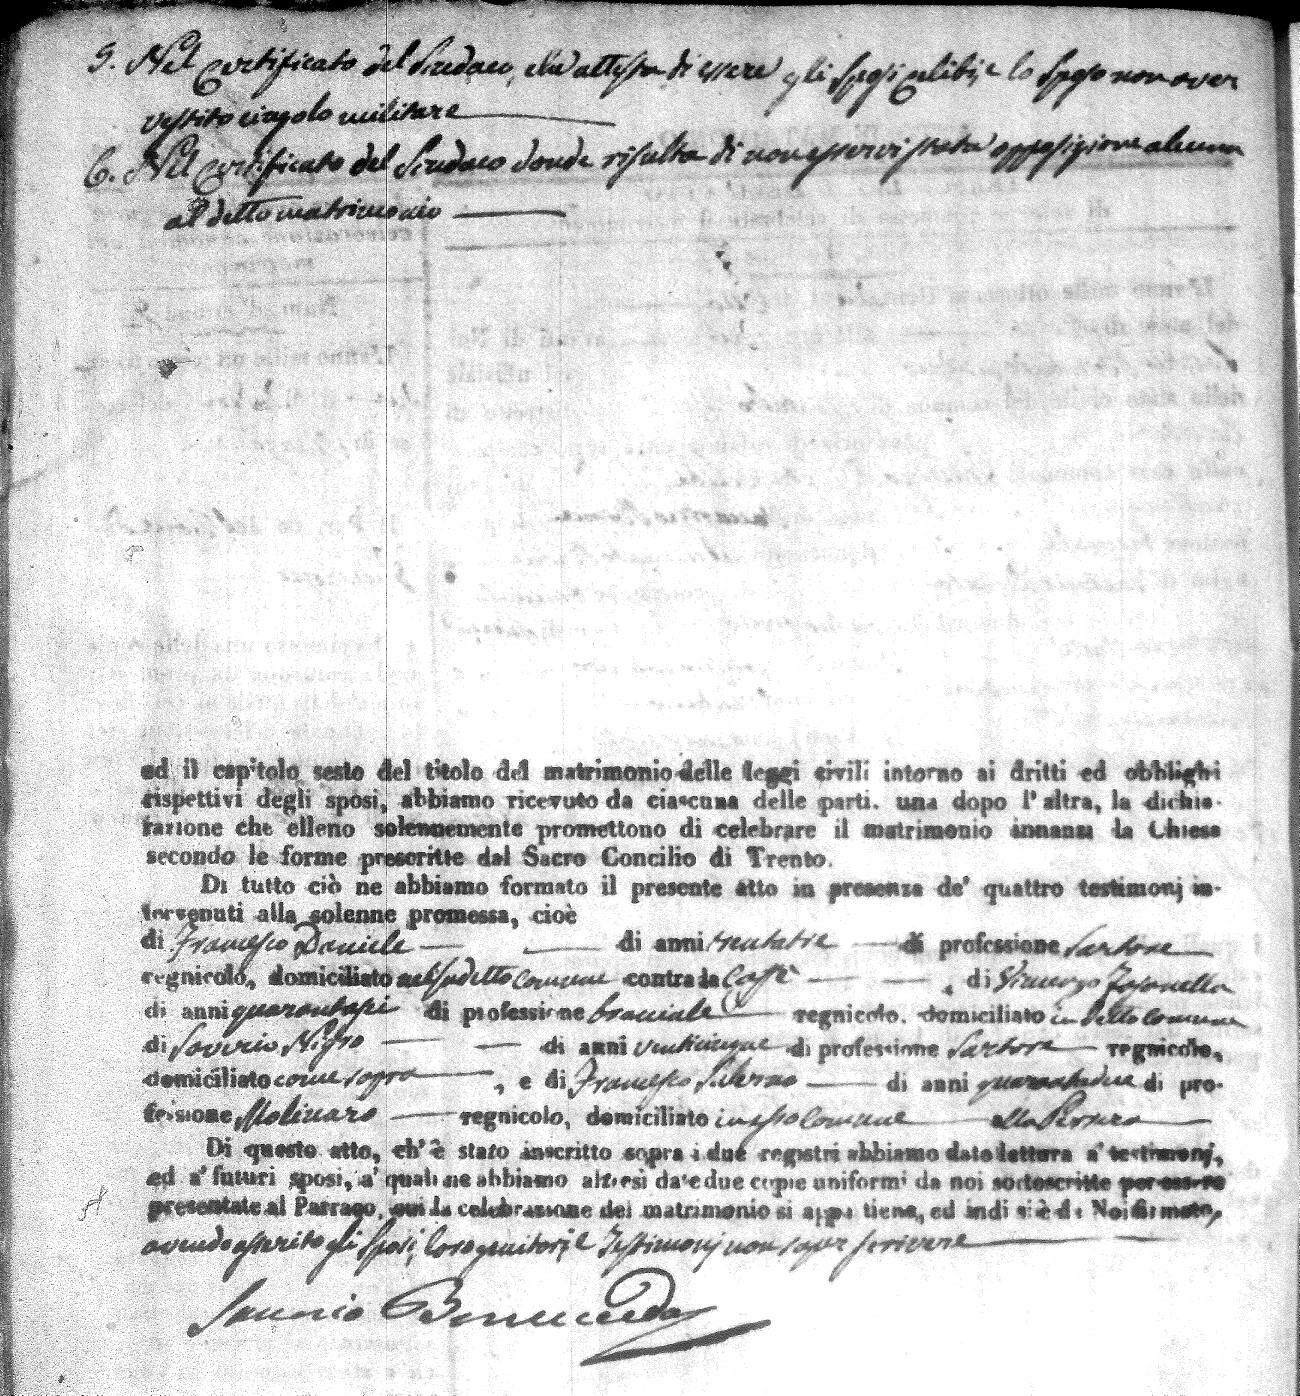 5. Nel Certificato del Sindaco, che attesta di essere gli Sposi celibi, e lo Sposo non aver
vestito cingolo militare
6. Nel Certificato del Sindaco donde risulta di non esservi stata opposizione alcuna
al detto matrimonio
ed il capitolo sesto del titolo del matrimonio delle leggi civili intorno ai dritti ed obblighi
rispettivi degli sposi, abbiamo ricevuto da ciascuna delle parti. una dopo l' altra, la dichia-
razione che elleno solennemente promettono di celebrare il matrimonio innanzi la Chiesa
secondo le forme prescritte dal Sacro Concilio di Trento.
Di tutto ciò ne abbiamo formato il presente atto in presenza de' quattro testimonj in-
tervenuti alla solenne promessa, cioè
di Francesco Daniele di anni trentatre di professione Sartore
regnicolo, domiciliato nel sudetto comune contrada Cafse di Vincenzo
di anni quarantasei di professione bracciale regnicolo. domiciliato in detto Comune
di Saverio Nigro di anni venticinque di professione Sartore regnicolo,
domiciliato come sopra, e di Francesco Salerno di anni quarantadue di pro-
fessione Molinaro regnicolo, domiciliato in esso Comune alla
Di questo atto, ch' è stato inscritto sopra i due registri abbiamo dato lettura a' testimonj,
ed a' futuri sposi, a' quali ne abbiamo altresì date due copie uniformi da noi sottoscritte per essere
presentate al Parraco, cui la celebrazione del matrimonio si appartiene, ed indi si è da Noi firmato,
avendo asserito gli Sposi, loro genitori, e Testimonj non saper scrivere